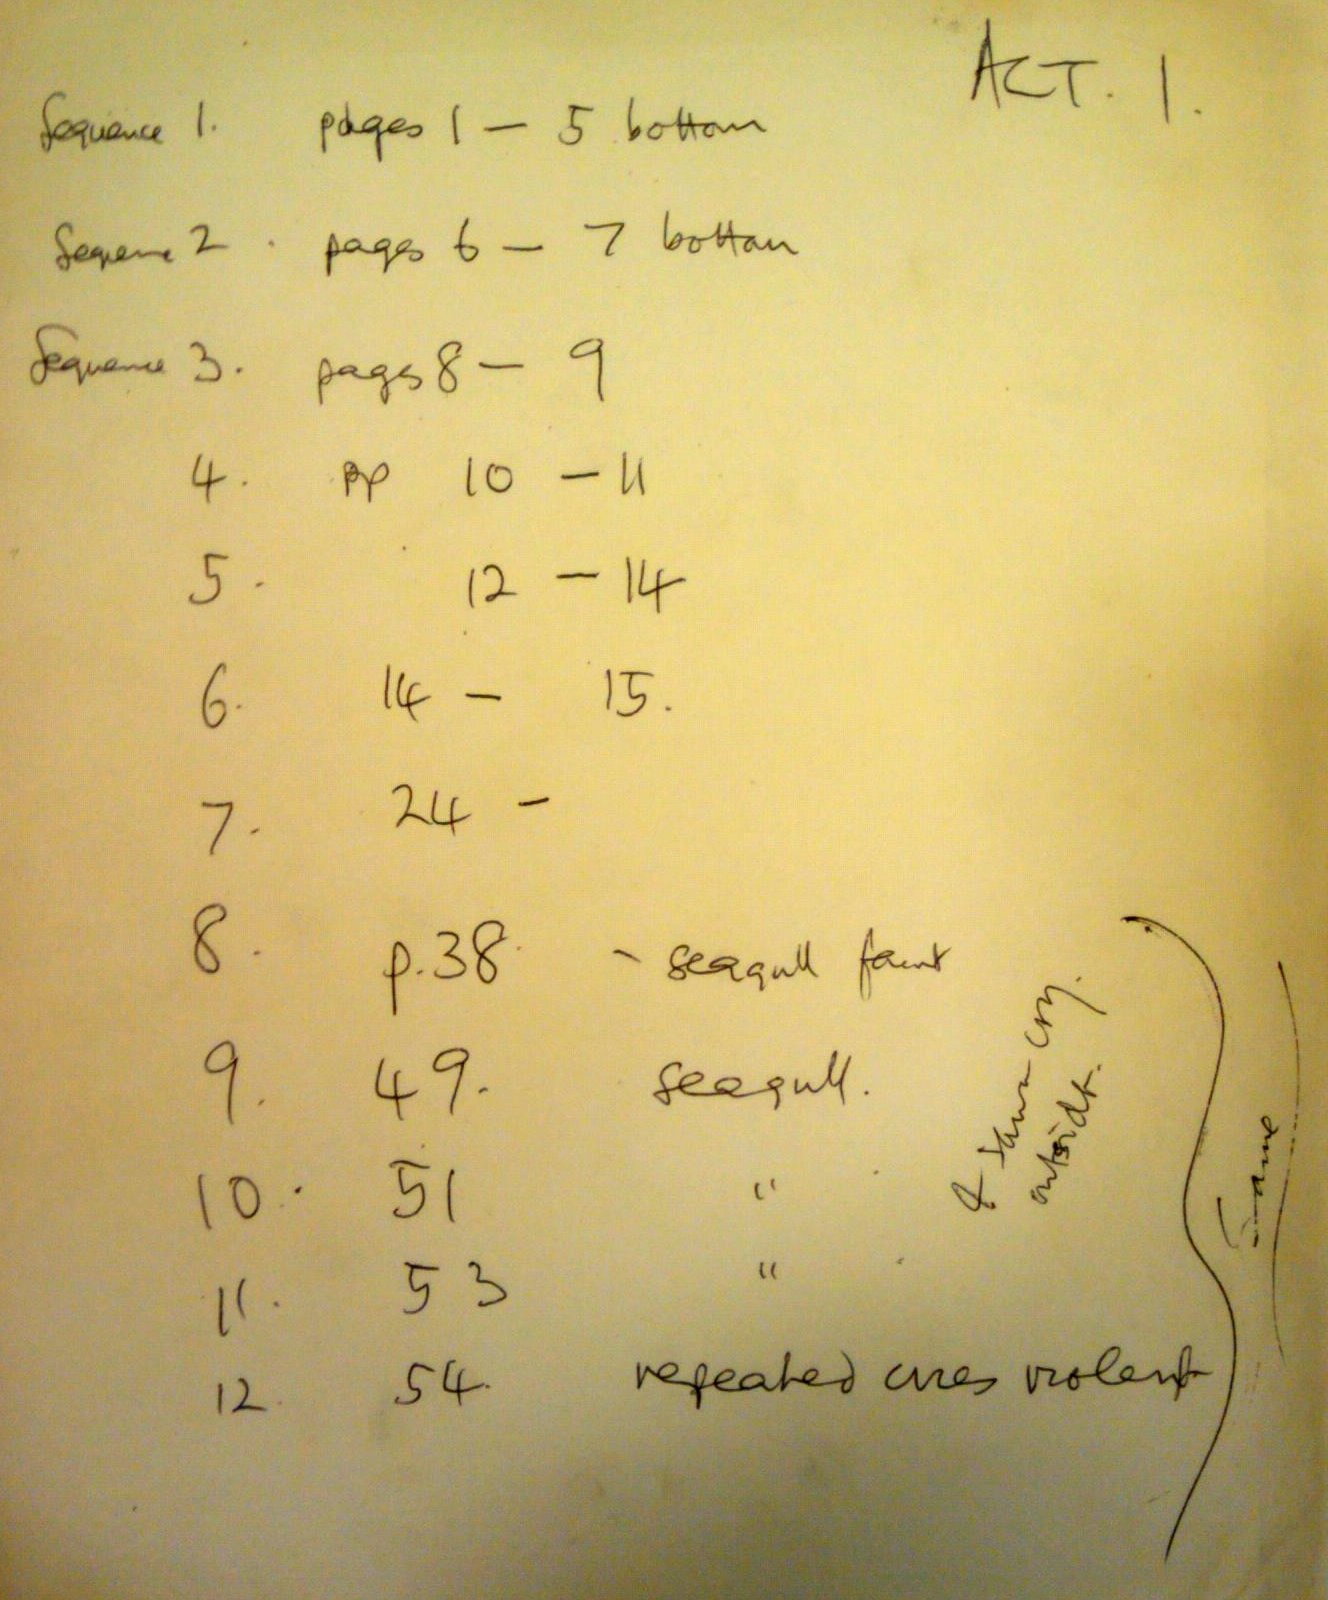 ACT. 1.
Sequence 1. pages 1 — 5 bottom
Sequence 2. pages 6 — 7 bottom
Sequence 3. pages 8 — 9
4. pp 10 — 11
5. 12 — 14
6. 14 — 15.
7. 24 —
8. p.38 - seagull faint
9. 49. seagull.
10. 51 "
11. 53 "
12 54. repeated cries violent
& same cry.
outside.
Same